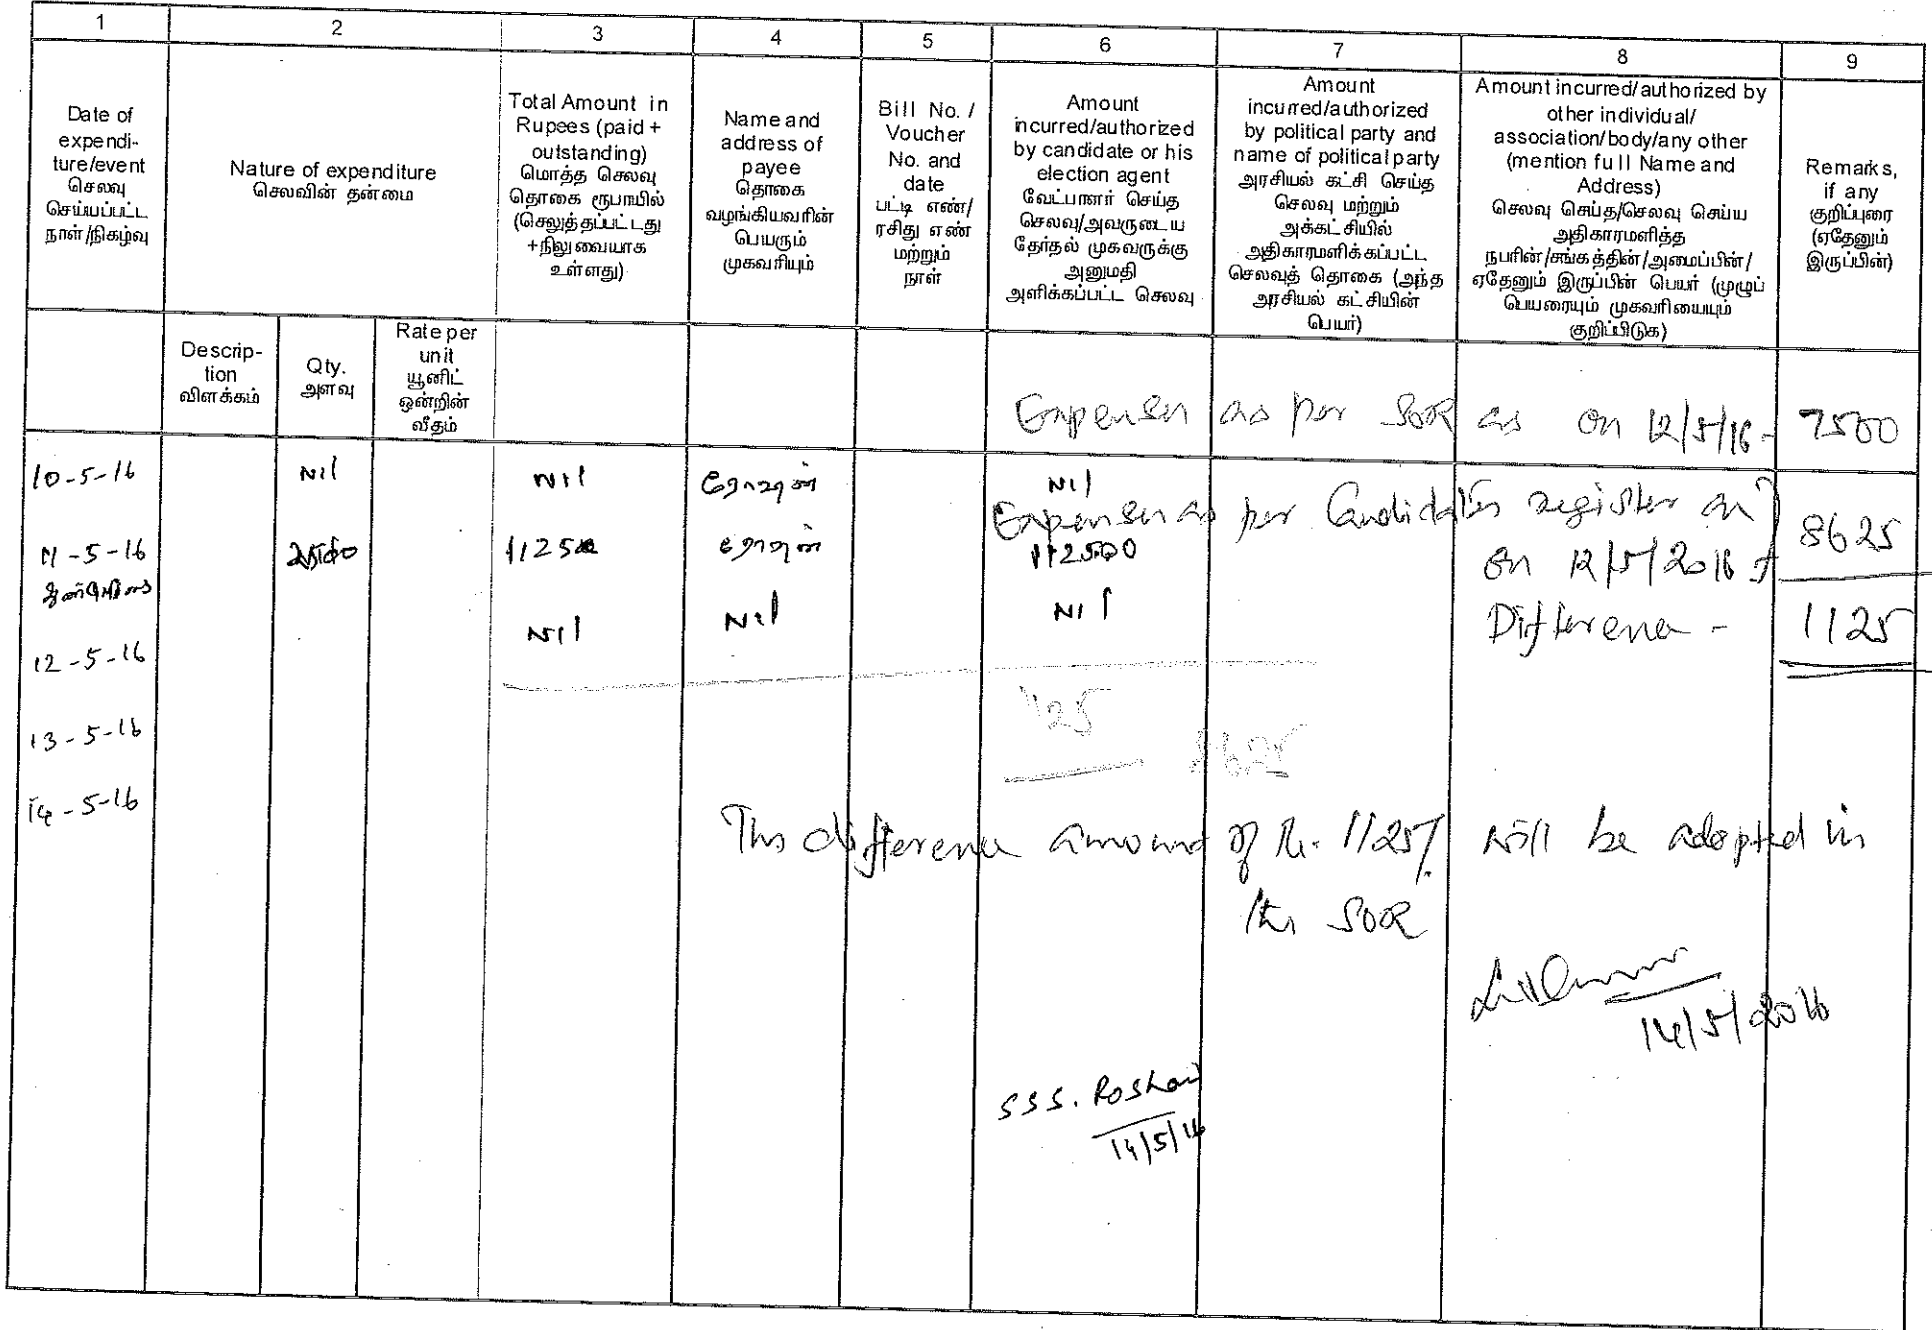 1 2 3 4 5 6 7 8 9
Date of
expendi-
ture/event
செலவு
செய்யப்பட்ட
நாள்/நிகழ்வு
Nature of expenditure
செலவின் தன்மை
Total Amount in
Rupees (paid +
outstanding)
மொத்த செலவு
தொகை ரூபாயில்
(செலுத்தப்பட்டது
+நிலுவையாக
உள்ளது)
Name and
address of
payee
தொகை
வழங்கியவரின்
பெயரும்
முகவரியும்
Bill No. /
Voucher
No. and
date
பட்டி எண்/
ரசிது எண்
மற்றும்
நாள்
Amount
incurred/authorized
by candidate or his
election agent
வேட்பாளர் செய்த
செலவு/அவருடைய
தேர்தல் முகவருக்கு
அனுமதி
அளிக்கப்பட்ட செலவு
Amount
incurred/authorized
by political party and
name of political party
அரசியல் கட்சி செய்த
செலவு மற்றும்
அக்கட்சியில்
அதிகாரமளிக்கப்பட்ட
செலவுத் தொகை (அந்த
அரசியல் கட்சியின்
பெயர்)
Amount incurred/authorized by
other individual/
association/body/any other
(mention full Name and
Address)
செலவு செய்த/செலவு செய்ய
அதிகாரமளித்த
நபரின்/சங்கத்தின்/அமைப்பின்/
ஏதேனும் இருப்பின் பெயர் (முழுப்
பெயரையும் முகவரியையும்
குறிப்பிடுக)
Remarks,
if any
குறிப்புரை
(ஏதேனும்
இருப்பின்)
Descrip-
tion
விளக்கம்
Qty.
அளவு
Rate per
unit
யூனிட்
ஒன்றின்
வீதம்
Expenses as per SOR as on 12/5/16 - 7500
10-5-16 Nil Nil ரோஷன் Nil
Expenses as per Candidates register as
on 12/5/2016 8625
11-5-16 1125 ரோஷன்
12-5-16 Nil Nil Nil
Difference - 1125
1125
8625
13-5-16
14-5-16
This difference amount of Rs. 1125/- will be adopted in
the SOR
14/5/2016
SSS. Roshan
14/5/16